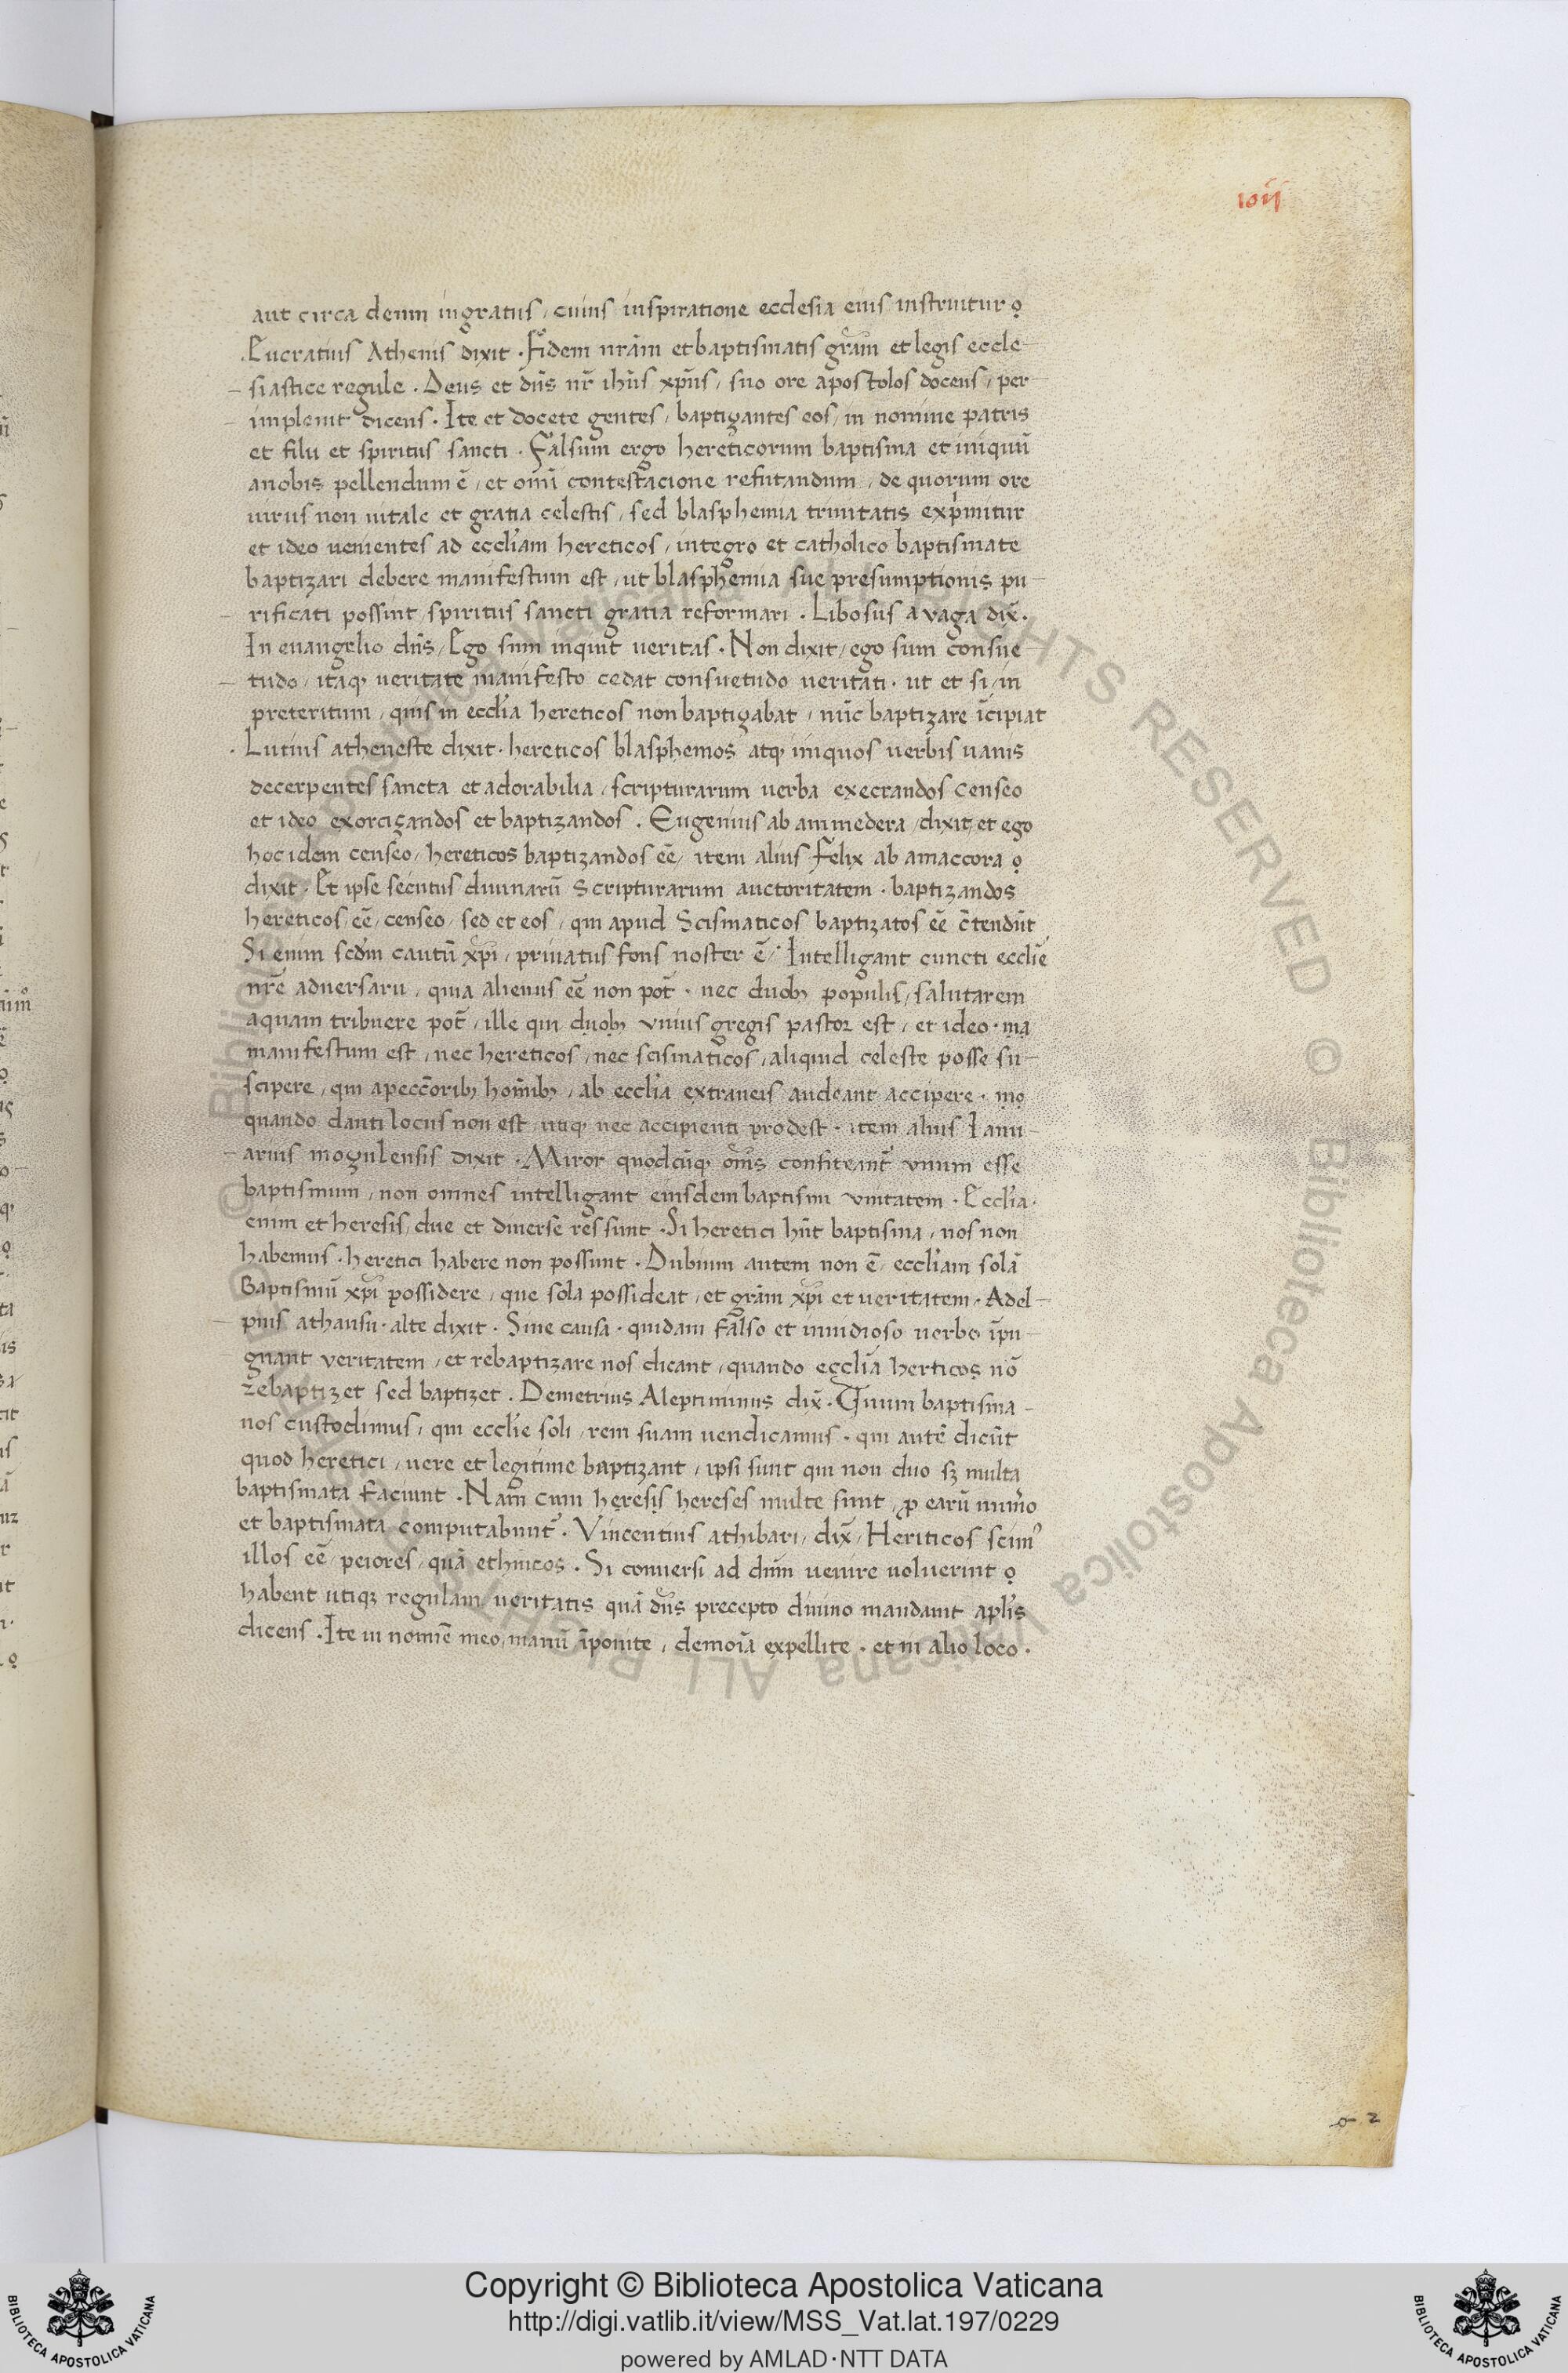 107
aut circa deum ingratus, cuius inspiratione ecclesia eius instruitur ꝍ
.Eucratius Athenis dixit . Fidem nr̄am et baptismatis gr̄am et legis eccle-
siastice regule . Deus et dn̄s nr̄ ihūs xp̄us, suo ore apostolos docens, per-
impleuit dicens . Ite et docete gentes, baptizantes eos, in nomine patris
et filii et spiritus sancti . Falsum ergo hereticorum baptisma et iniquū
anobis pellendum ē, et omī contestacione refutandum, de quorum ore
uirus non uitale et gratia celestis, sed blasphemia trinitatis exp̍mitur
et ideo uenientes ad eccl̄iam hereticos, integro et catholico baptismate
baptizari debere manifestum est, ut blasphemia sue presumptionis pu-
rificati possint, spiritus sancti gratia reformari . Libosus a vaga dix̄.
In euangelio dn̄s, Ego sum inquit ueritas . Non dixit, ego sum consue-
tudo, itaqꝫ ueritate manifesto cedat consuetudo ueritati . ut et si, in
preteritum, quis in eccl̄ia hereticos non baptizabat, nūc baptizare īcipiat
. Lutius atheneste dixit . hereticos blasphemos atqꝫ iniquos uerbis uanis
decerpentes sancta et adorabilia, scripturarum uerba execrandos censeo
et ideo exorcizandos et baptizandos . Eugenius ab ammedera, dixit, et ego
hoc idem censeo, hereticos baptizandos eē, item alius Felix ab amaccora ꝍ
dixit . Et ipse secutus diuinarū Scripturarum auctoritatem . baptizandos
hereticos, eē, censeo, sed et eos, qui apud Scismaticos baptizatos eē c̄tendūt
Si enim scd̄m cautū xp̄i, priuatus fons noster ē, Intelligant cuncti eccl̄ie
nr̄e aduersarii, quia alienus eē non pot̄ . nec duobꝫ populis, salutarem
aquam tribuere pot̄, ille qui duobꝫ vnius gregis pastor est, et ideo . ma
manifestum est, nec hereticos, nec scismaticos, aliquid celeste posse su-
scipere, qui apecc̄oribꝫ hom̄ibꝫ, ab eccl̄ia extraneis audeant accipere . mo
quando danti locus non est, utiqꝫ nec accipienti prodest . item alius Ianu-
arius mogulensis dixit . Miror quodcūqꝫ om̄s confiteant᷑ vnum esse
baptismum, non omnes intelligant eiusdem baptismi vnitatem . Eccl̄ia .
enim et heresis, due et diuerse res sunt . Si heretici hn̄t baptisma, nos non
habemus . heretici habere non possunt . Dubium autem non ē, eccl̄iam solā
Baptismū xp̄i possidere, que sola possideat, et gr̄am xp̄i et ueritatem . Adel-
pius athansii . alte dixit . Sine causa . quidam falso et inuidioso uerbo īpu-
gnant veritatem, et rebaptizare nos dicant, quando eccl̄ia herticos nō
rebaptizet sed baptizet . Demetrius Aleptiminus dix̄ . Vnum baptisma -
nos custodimus, qui eccl̄ie soli, rem suam uendicamus . qui autē dicūt
quod heretici, uere et legitime baptizant, ipsi sunt qui non duo sꝫ multa
baptismata faciunt . Nam cum heresis hereses multe sunt, ꝓ earū num̄o
et baptismata computabunt᷑ . Vincentius athibari, dix̄, Heriticos scim᷒
illos eē, peiores, quā ethnicos . Si conuersi ad dūm uenire uoluerint ꝍ
habent utiqꝫ regulam, ueritatis quā dn̄s precepto diuino mandauit apl̄is
dicens . Ite in nomīe meo, manū īponite, demoīa expellite . et in alio loco .
o 2
Copyright © Biblioteca Apostolica Vaticana
http://digi.vatlib.it/view/MSS_Vat.lat.197/0229
powered by AMLAD·NTT DATA